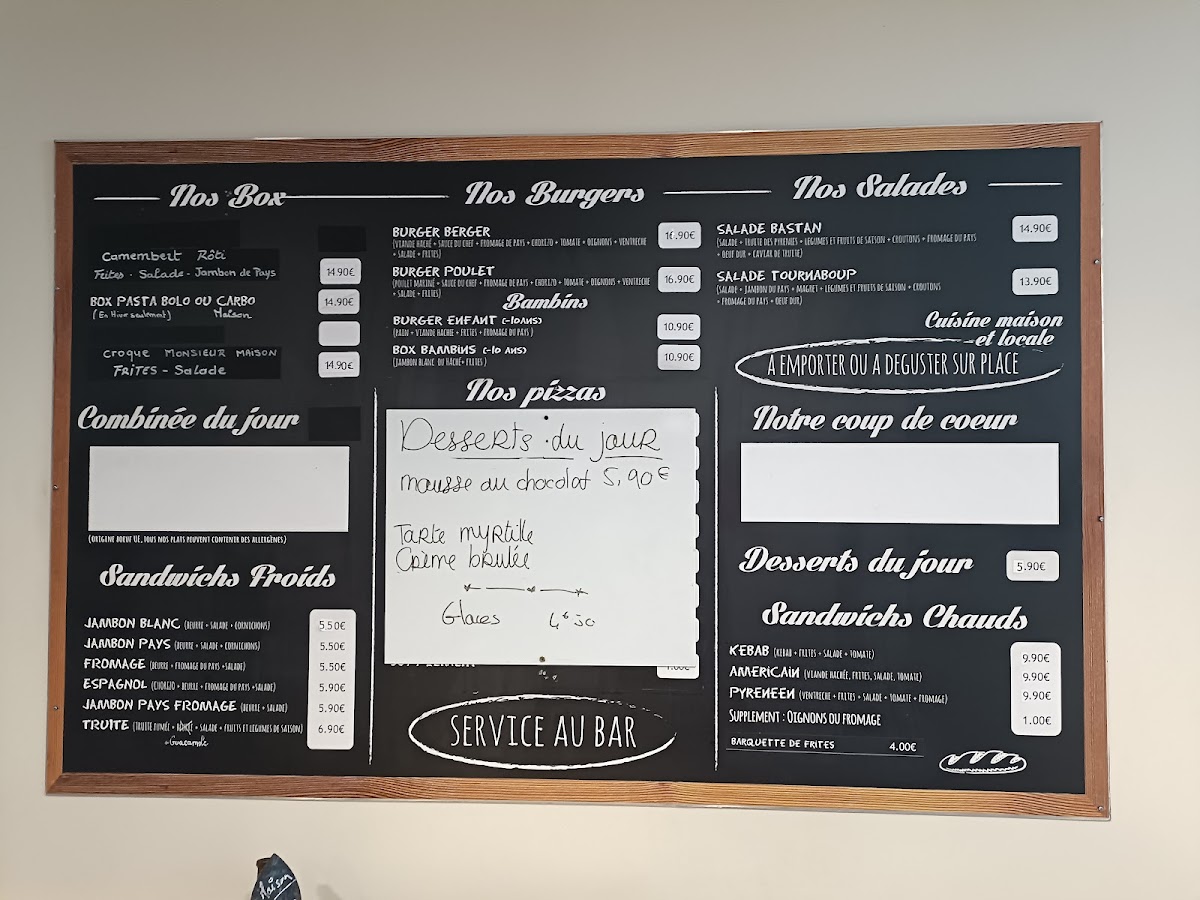 Nos Box
Camembert Rôti
Frites - Salade - Jambon de Pays
14.90€
BOX PASTA BOLO OU CARBO
14.90€
(En Hiver seulement) Maison
CROQUE MONSIEUR MAISON
FRITES - Salade
14.90€
Combinée du jour
(ORIGINE BOEUF UE, TOUS NOS PLATS PEUVENT CONTENIR DES ALLERGÈNES)
Sandwichs Froids
JAMBON BLANC (BEURRE + SALADE + CORNICHONS) 5.50€
JAMBON PAYS (BEURRE + SALADE + CORNICHONS) 5.50€
FROMAGE (BEURRE + FROMAGE DU PAYS +SALADE) 5.50€
ESPAGNOL (CHORIZO + BEURRE + FROMAGE DU PAYS +SALADE) 5.90€
JAMBON PAYS FROMAGE (BEURRE + SALADE) 5.90€
TRUITE (TRUITE FUMÉE + BEURRE + SALADE + FRUITS ET LEGUMES DE SAISON) 6.90€
+Guacamole
Nos Burgers
BURGER BERGER 16.90€
(VIANDE HACHÉ + SAUCE DU CHEF + FROMAGE DE PAYS + CHORIZO + TOMATE + OIGNONS + VENTRECHE
+ SALADE + FRITES)
BURGER POULET 16.90€
(POULET MARINÉ + SAUCE DU CHEF + FROMAGE DE PAYS + CHORIZO + TOMATE + OIGNONS + VENTRECHE
+ SALADE + FRITES)
Bambins
BURGER ENFANT (-10ANS) 10.90€
(PAIN + VIANDE HACHÉE + FRITES + FROMAGE DU PAYS )
BOX BAMBINS (-10 ANS) 10.90€
(JAMBON BLANC OU HACHÉ+ FRITES )
Nos pizzas
Desserts du jour
mousse au chocolat 5,90€
Tarte myrtille
Crème brulée
Glaces 4€50
SERVICE AU BAR
Nos Salades
SALADE BASTAN 14.90€
(SALADE + TRUITE DES PYRENEES + LEGUMES ET FRUITS DE SAISON + CROUTONS + FROMAGE DU PAYS
+ OEUF DUR + CAVIAR DE TRUITE)
SALADE TOURNABOUP 13.90€
(SALADE + JAMBON DU PAYS + MAGRET + LEGUMES ET FRUITS DE SAISON + CROUTONS
+ FROMAGE DU PAYS + OEUF DUR)
Cuisine maison
et locale
A EMPORTER OU A DEGUSTER SUR PLACE
Notre coup de coeur
Desserts du jour 5.90€
Sandwichs Chauds
KEBAB (KEBAB + FRITES + SALADE + TOMATE) 9.90€
AMERICAIN (VIANDE HACHÉE, FRITES, SALADE, TOMATE) 9.90€
PYRENEEN (VENTRECHE + FRITES + SALADE + TOMATE + FROMAGE) 9.90€
SUPPLEMENT : OIGNONS OU FROMAGE 1.00€
BARQUETTE DE FRITES 4.00€
Maison